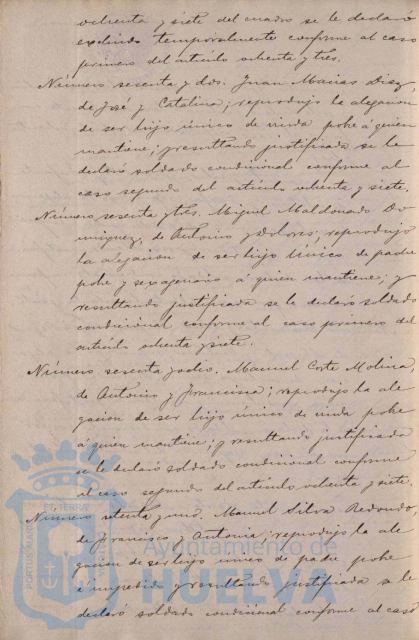 ochenta y siete del cuadro se le declaró
excluido temporalmente conforme al caso
primero del artículo ochenta y tres.
Número sesenta y dos. Juan Macias Diaz,
de José y Catalina; reprodujo la alegacion
de ser hijo único de viuda pobre á quien
mantiene; y resultando justificada se le
declaró soldado condicional conforme al
caso segundo del artículo ochenta y siete.
Número sesenta y tres. Miguel Maldonado Do
minguez, de Antonio y Dolores; reprodujo
la alegacion de ser hijo único de padre
pobre y sexagenario á quien mantiene; y
resultando justificada se le declaró soldado
condicional conforme al caso primero del
artículo ochenta y siete.
Número sesenta y ocho. Manuel Corte Molina,
de Antonio y Francisca; reprodujo la ale
gacion de ser hijo único de viuda pobre
á quien mantiene; y resultando justificada
se le declaró soldado condicional conforme
al caso segundo del artículo ochenta y siete.
Número setenta y uno. Manuel Silva Redondo,
de Francisco y Antonia; reprodujo la ale
gacion de ser hijo único de padre pobre
é impedido y resultando justificada se le
declaró soldado condicional conforme al caso
PORTUS MARIS
ET TERRAE
Ayuntamiento de
HUELVA